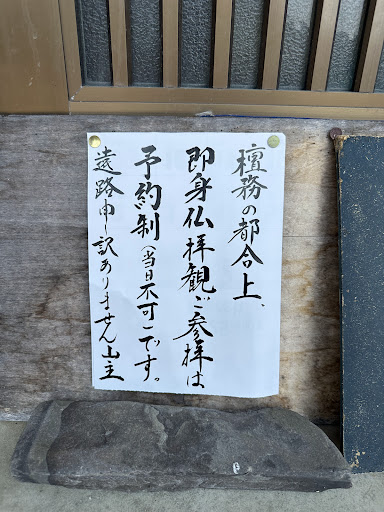 檀務の都合上、
即身仏拝観ご参拝は
予約制(当日不可)です。
遠路申し訳ありません山主